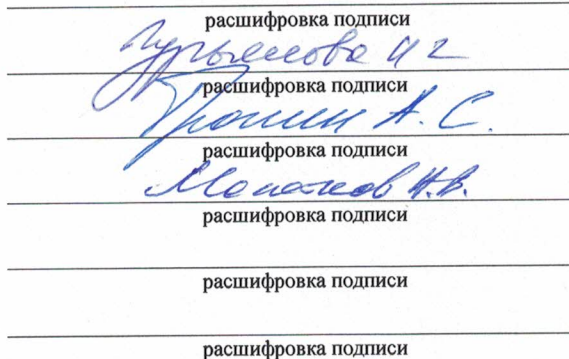 расшифровка подписи
Гурьянова И Г
расшифровка подписи
Трошин А. С.
расшифровка подписи
Н.В.
расшифровка подписи
расшифровка подписи
расшифровка подписи